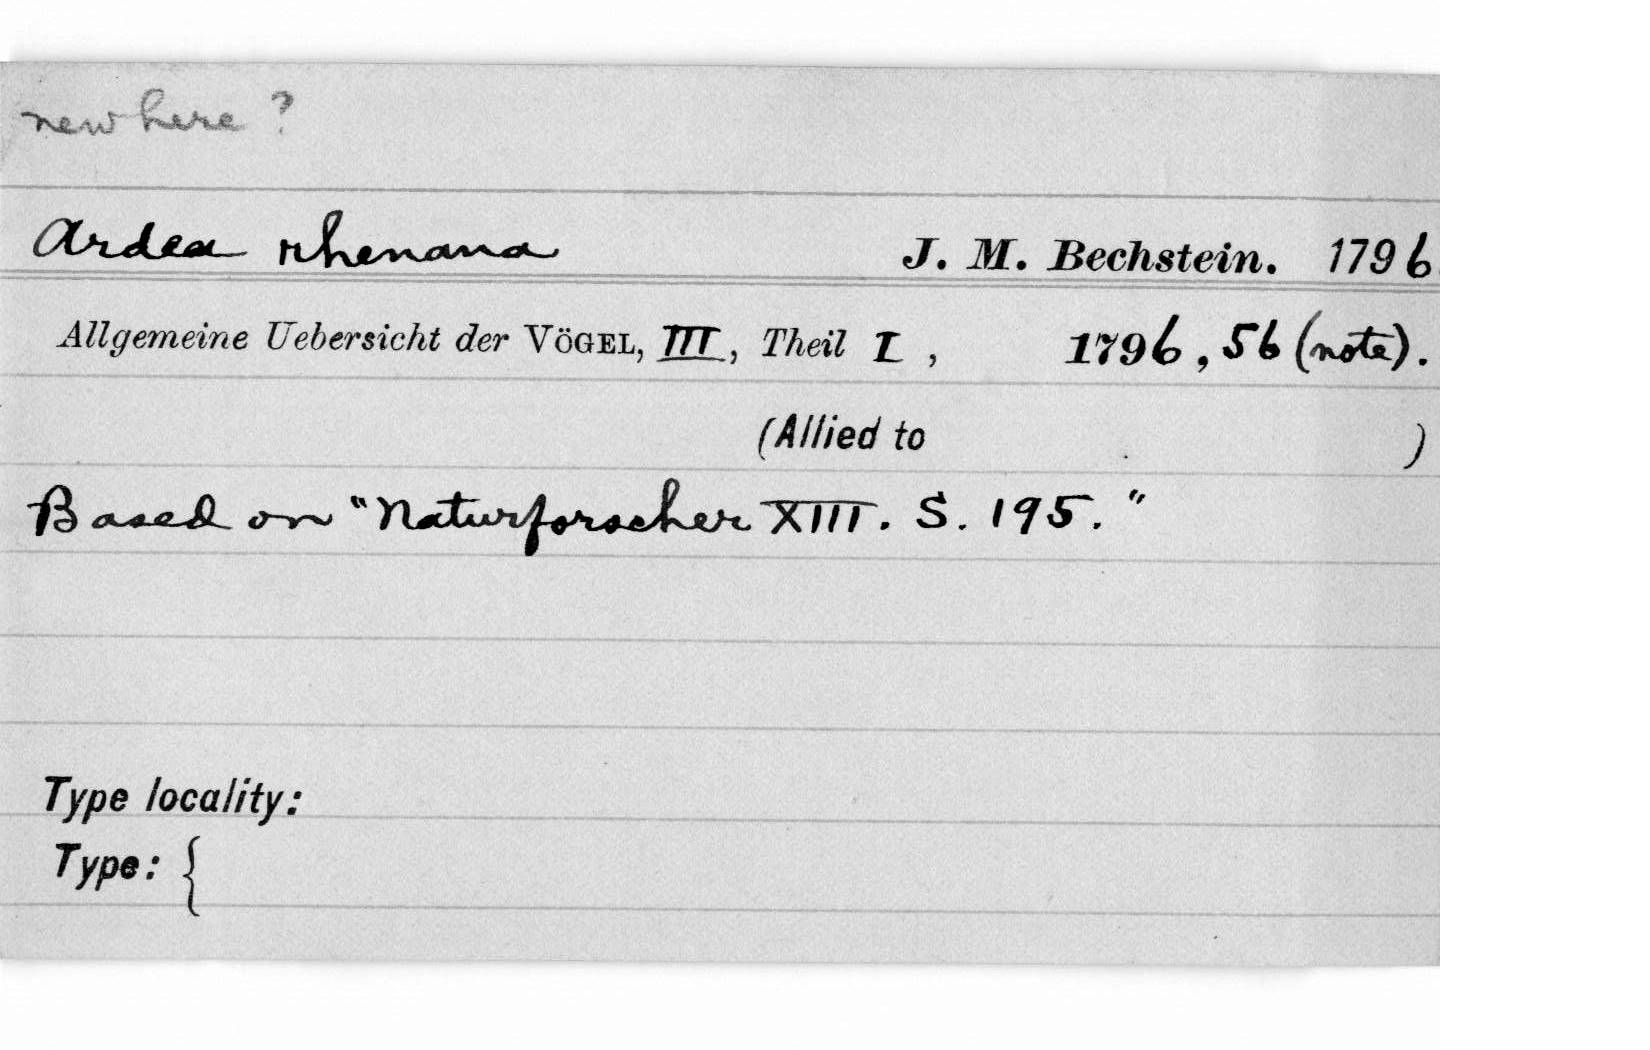 new here ?
Ardea rhenana J. M. Bechstein. 1796
Allgemeine Uebersicht der VÖGEL, III, Theil I, 1796, 56 (note).
(Allied to )
Based on "Naturforscher XIII. S. 195."
Type locality:
Type: {